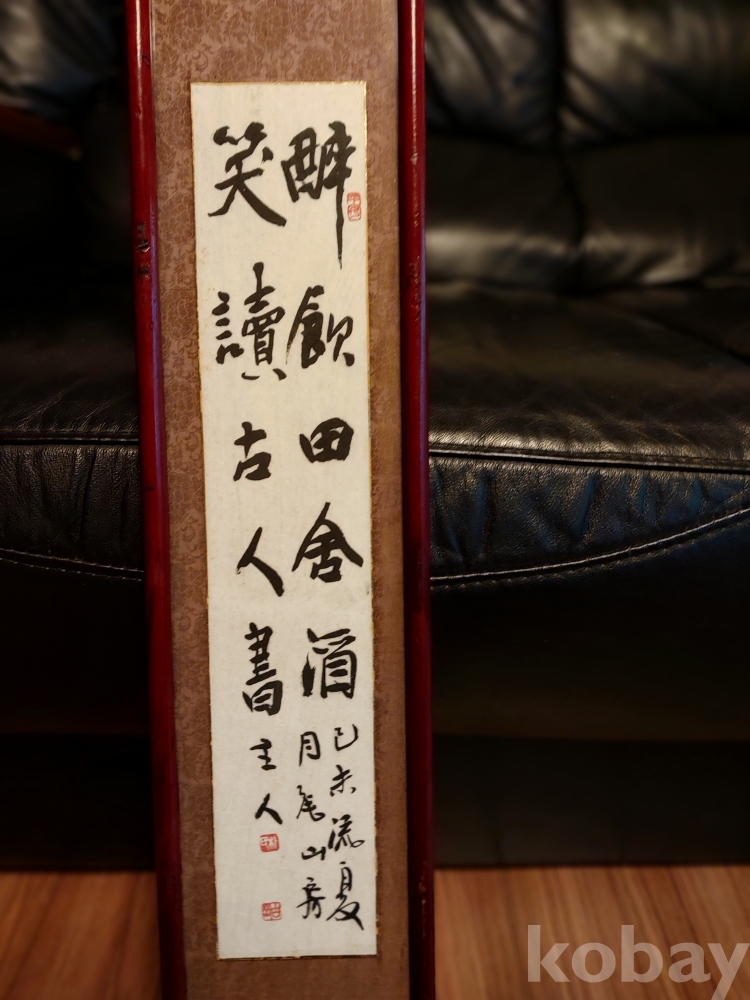 醉飲田舍酒
笑讀古人書
己未流夏
月尾山房
主人
kobay